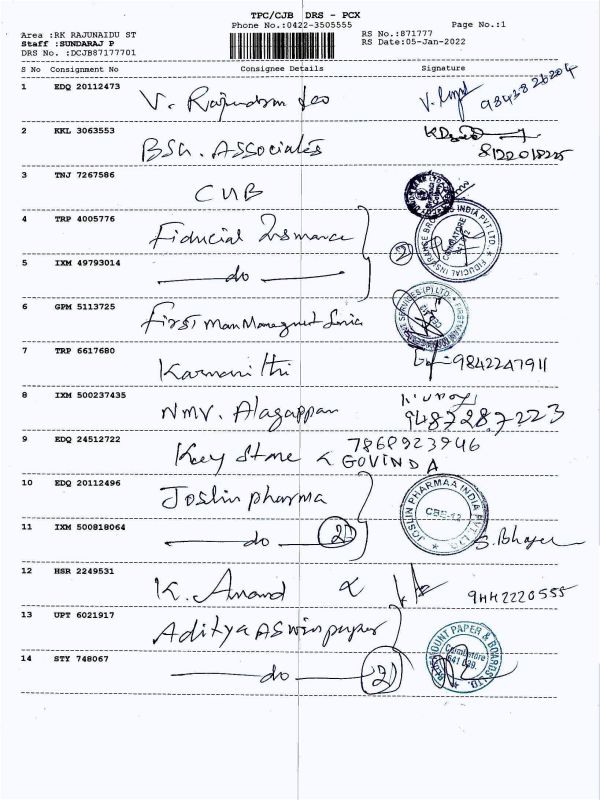 TPC/CJB DRS - PCX
Phone No.:0422-3505555 Page No.:1
Area :RK RAJUNAIDU ST RS No.:871777
Staff :SUNDARAJ P RS Date:05-Jan-2022
DRS No. :DCJB87177701
S No Consignment No Consignee Details Signature
1 EDQ 20112473 V.
2 KKL 3063553 BSG. Associates
8122018225
3 TNJ 7267586 CUB
4 TRP 4005776 Fiducial Insurance 2
FIDUCIAL INSURANCE INDIA PVT LTD COIMBATORE
5 IXM 49793014 do
6 GPM 5113725 First Man Managment
7 TRP 6617680 9842247911
8 IXM 500237435 NMV. Alagappan 9487287223
9 EDQ 24512722 Key Stone 7868923946
GOVINDA
10 EDQ 20112496 Joslin pharma
JOSLIN PHARMAA INDIA PVT LTD CBE-12
11 IXM 500818064 do 2
12 HSR 2249531 K. Anand 9442220555
13 UPT 6021917 Aditya Aswin paper
PAPER & BOARDS LTD. Coimbatore
14 STY 748067 do 2